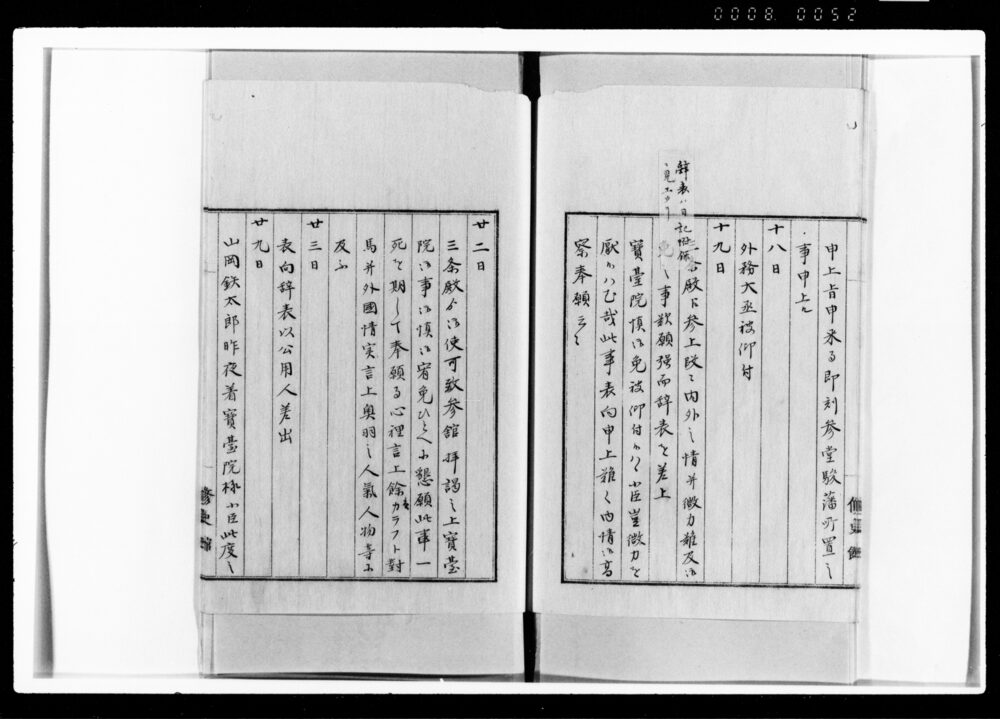 0008 0052
申上旨申来る即刻参堂駿藩所置之
事申上ル
十八日
外務大丞被仰付
十九日
辞表ハ日記附録
ニ見エタリ
殿に参上段々内外之情并微力難及御
免之事歎願強而辞表を差上
寶臺院慎御免被仰付かハ小臣豈微力を
厭かハむ哉此事表向申上難く内情御高
察奉願云々
修史館
廿二日
三条殿ゟ御使可致参館拝謁之上寶臺
院御事御慎御宥免ひとへに懇願此事一
死を期して奉願る心裡言上餘カラフト對
馬并外國情実言上奥羽之人氣人物等に
及ふ
廿三日
表向辞表以公用人差出
廿九日
山岡鉄太郎昨夜着寶臺院様小臣此度之
修史館